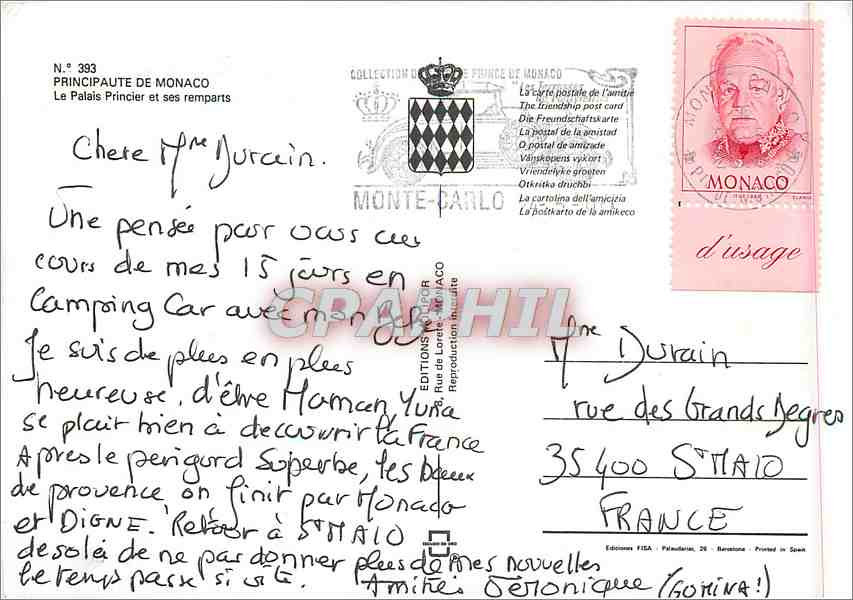 N.° 393
PRINCIPAUTE DE MONACO
Le Palais Princier et ses remparts
COLLECTION D PRINCE DE MONACO
MONTE-CARLO
La carte postale de l'amitié
The friendship post card
Die Freundschaftskarte
La postal de la amistad
O postal de amizade
Vänskopens vykort
Vriendelyke groeten
Otkritka druchbi
La cartolina dell'amicizia
La postkarto de la amikeco
MONACO
d'usage
Chere Mme Durain.
Une pensée pour vous au
cours de mes 15 jours en
Camping Car avec mon
Je suis de plus en plus
heureuse, d'être Maman, Yuna
se plait bien à decouvrir la France
Apres le perigord Superbe, les baux
de provence on finit par Monaco
et DIGNE. Retour à St MALO
desolée de ne pas donner plus de mes nouvelles
le temps passe si vite. Amitiés Véronique (GOMINA!)
EDITIONS MOLIPOR
8, Rue de Lorète - MONACO
Reproduction interdite
CPAPHIL
Mme Durain
rue des Grands Degres
35400 St MALO
FRANCE
Ediciones FISA - Palaudarias, 26 - Barcelona - Printed in Spain